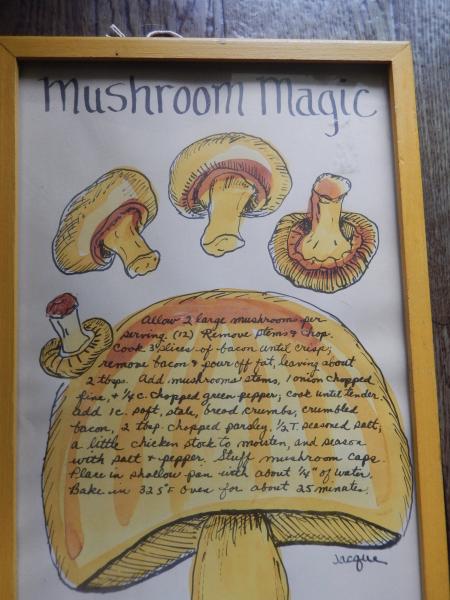 Mushroom Magic
Allow 2 large mushrooms per
serving (12) Remove stems & chop.
Cook 3 slices of bacon until crisp;
remove bacon & pour off fat, leaving about
2 tbsp. Add mushrooms stems, 1 onion chopped
fine, + 1/4 c. chopped green pepper; cook until tender.
add 1 c. soft, stale, bread crumbs, crumbled
bacon, 2 tbsp. chopped parsley, 1/2 T. seasoned salt;
a little chicken stock to moisten, and season
with salt + pepper. Stuff mushroom caps.
Place in shallow pan with about 1/4" of water.
Bake in 325°F oven for about 25 minutes.
Jacque